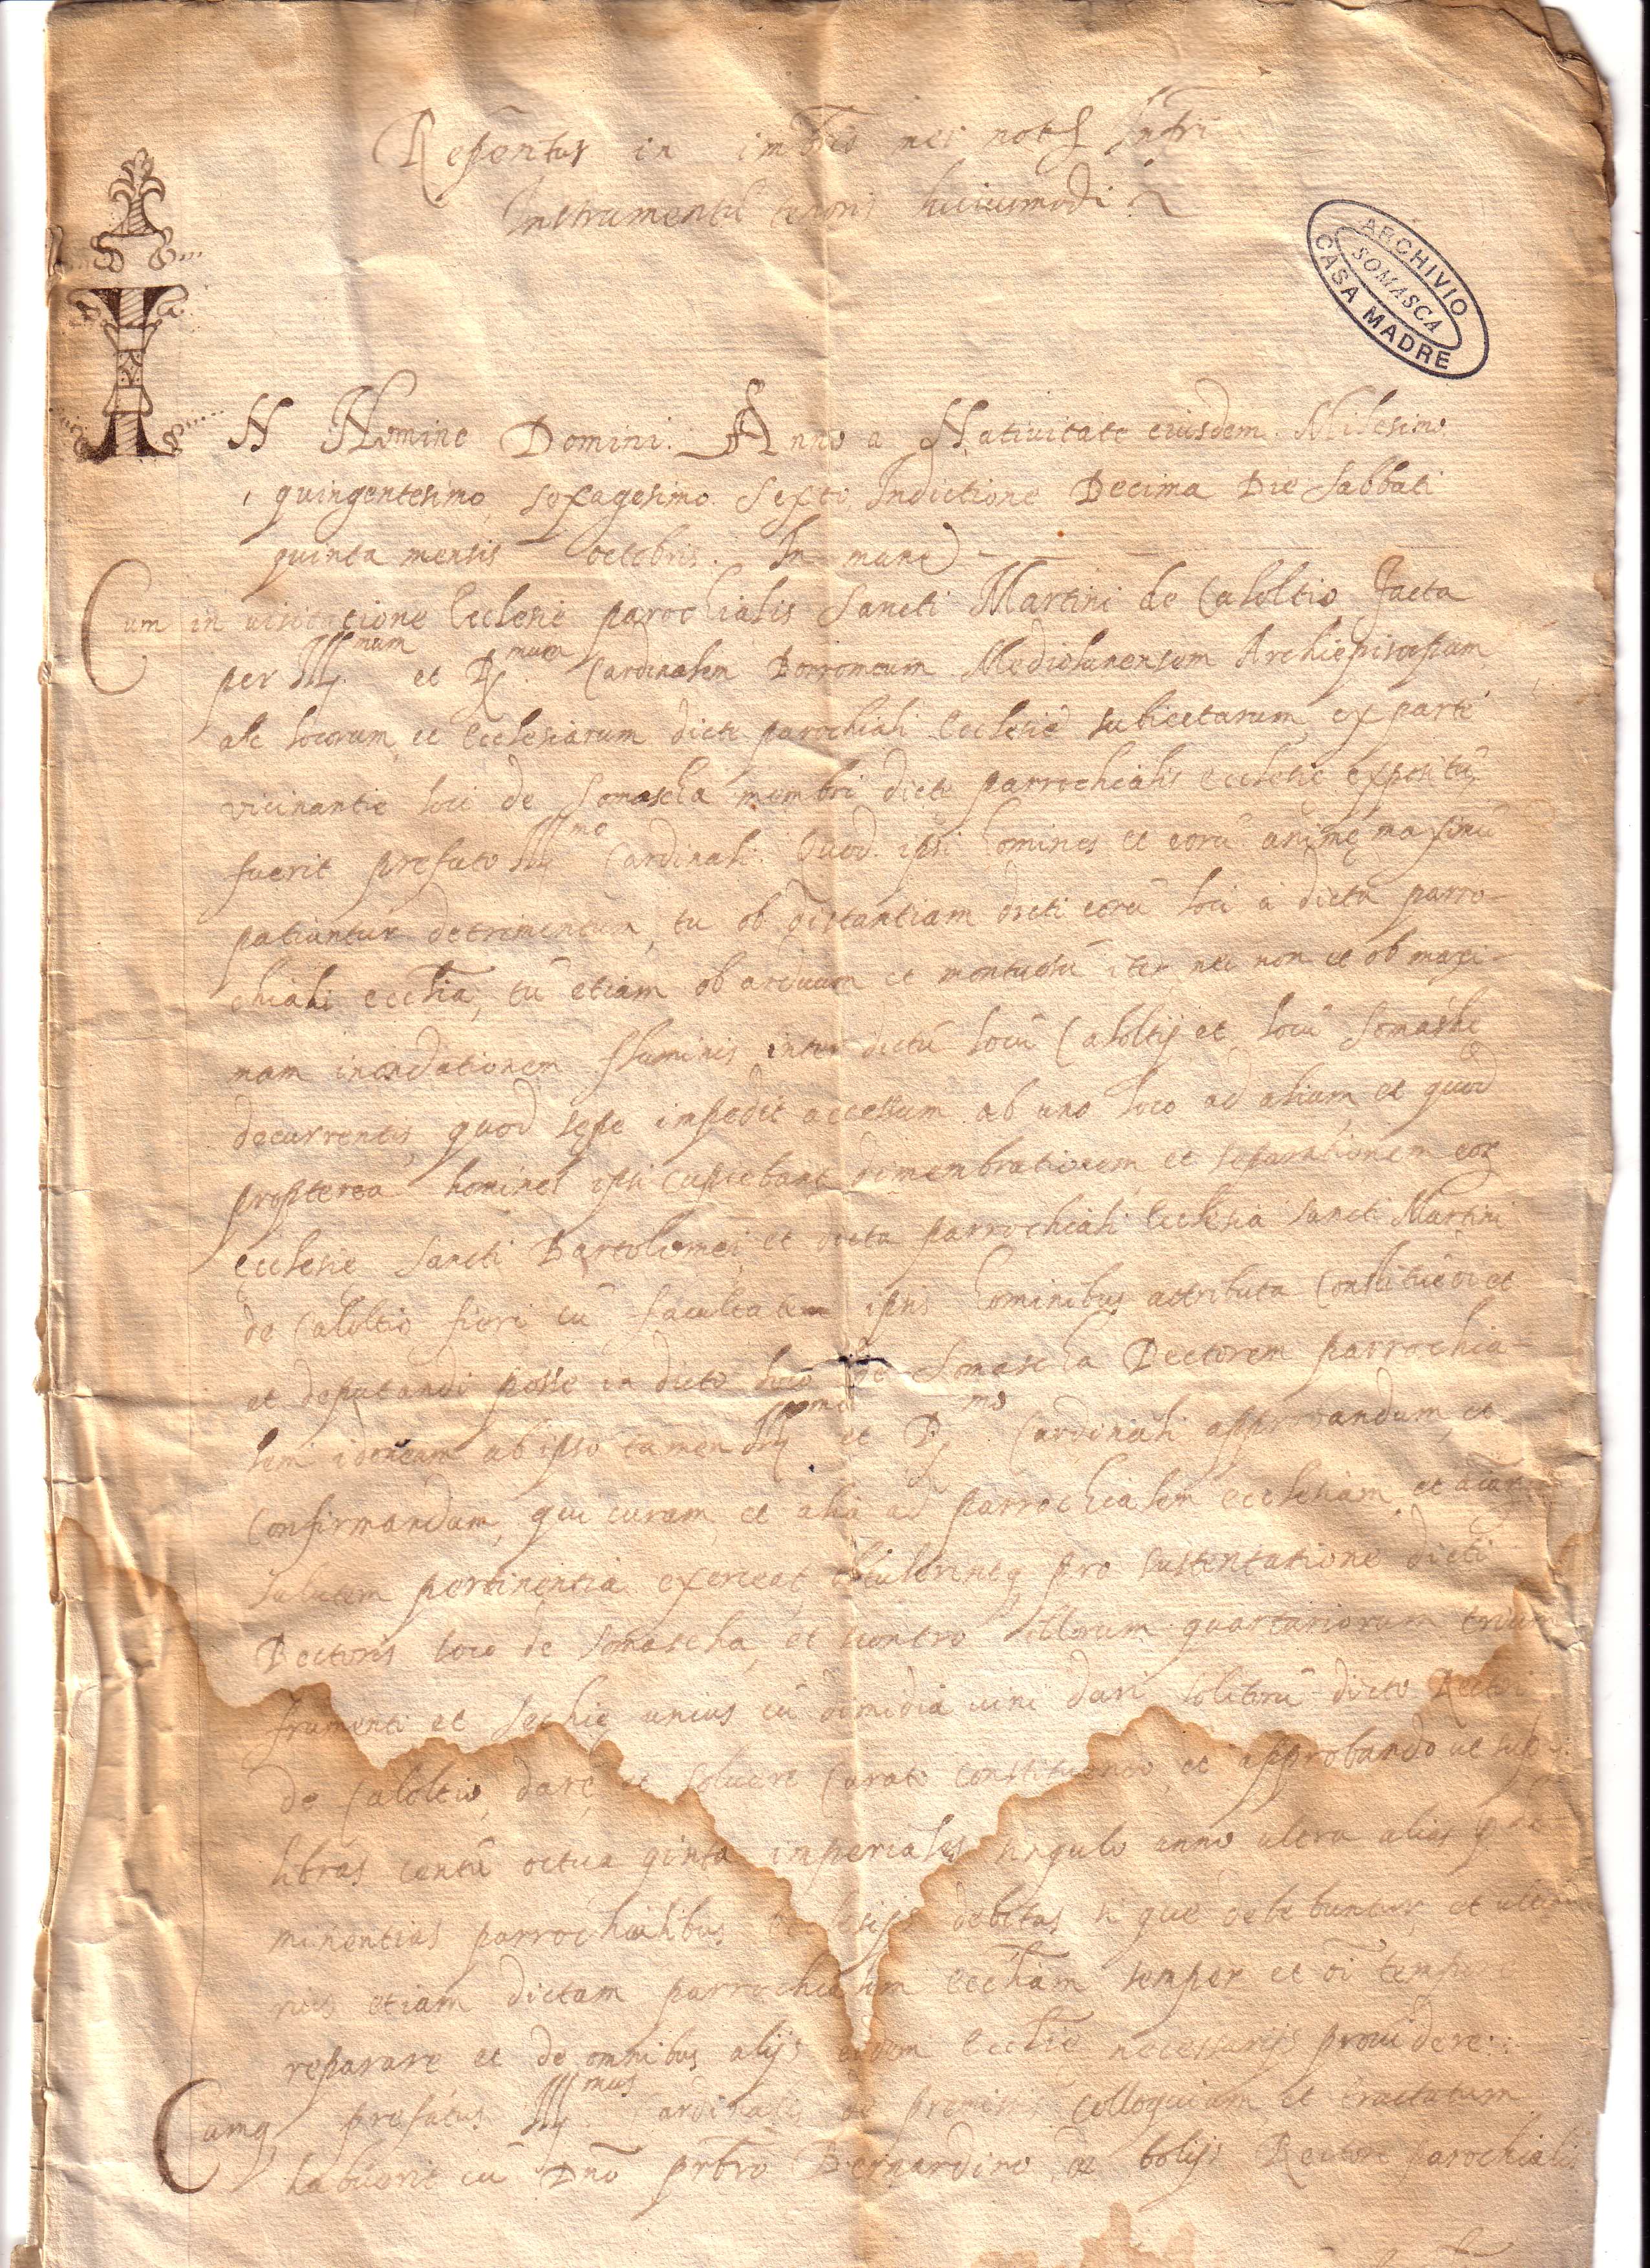 Reperitur in imbris mei notȷ Infri
Instrumentū tenoris huiusmodi
ARCHIVIO
SOMASCA
CASA MADRE
IN Nomine Domini. Anno a Natiuitate eiusdem. Milesimo
quingentesimo, sexagesimo. Sexto, Indictione Decima Die Sabbati
quinta mensis octobris. In mane
Cum in uisitatione Ecclesie parochialis Sancti Martini de Caloltio facta
per Ill.mum et R.mum Cardinalem Borromeum Mediolanensem Archiepiscopum
ac locorum, et Ecclesiarum dicte parochiali Ecclesie subiectarum, ex parte
vicinantie loci de Somascha membri dicte parrochialis ecclesie expositū
fuerit prefato Ill.mo Cardinali. Quod ipsi homines et eorū anime maximū
patiuntur detrimentum, tū ob distantiam dicti eorū loci a dicta parro-
chiali ecclia, tū etiam ob arduum et montuosū iter nec non et ob maxi-
mam inondationem fluminis, inter dictū locū Caloltij et locū Somasche
decurrentis, quod sepe impedit accessum ab uno loco ad alium, et quod
propterea homines ipsi cupiebant dimembrationem et separationem eor
ecclesie Sancti Bartolomei, et dicta parrochiali Ecclesia Sancti Martini
de Caloltio fieri cū facultatem ipsis hominibus attributa Constituendi et
et deputandi posse in dicto loco de Somascha Rectorem parrochia-
lem idoneum ab ipso tamen Ill.mo et R.mo Cardinali approbandum, et
Confirmandum, qui curam, et alia ad parrochialem ecclesiam, et aīar
salutem pertinentia exerceat, obtulerintq pro sustentatione dicti
Rectoris loco de Somascha, et contro illorum quartariorum trium
frumenti et sechie unius cū dimidia uini dari solitorū dicto Rectori
de Caloltio, dare et soluere Curato constituendo, et approbando ut sup.
libras centū octua ginta imperiales singulo anno ultra alias p
minentias parrochialibus Ecclesijs debitas si que debebuntur, et ulte
rius etiam dictam parrochialem eccliam semper et oī tempore
reparare et de omnibus alijs eidem Ecclie necessarijs prouidere:
Cumq prefatus Ill.mus Cardinalis de premissis colloquium et tractatum
habuerit cū Dno prbro Bernardino de bolijs Rectore parochialis